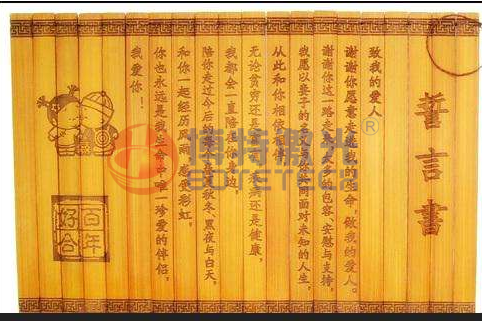 誓言書
致我的爱人
谢谢你愿意走进我的生命，做我的爱人。
谢谢你这一路走来太多的包容、安慰与支持，
我愿以妻子的名义与你共同面对未知的人生，
从此和你相依相伴，
无论贫穷还是 还是健康，
我都会一直陪在你身边，
陪你走过今后的 秋冬、黑夜与白天，
和你一起经历风雨 感受彩虹，
你也永远是我生命中唯一珍爱的伴侣，
我爱你！
百年
好合
博特激光®
BOTETECH